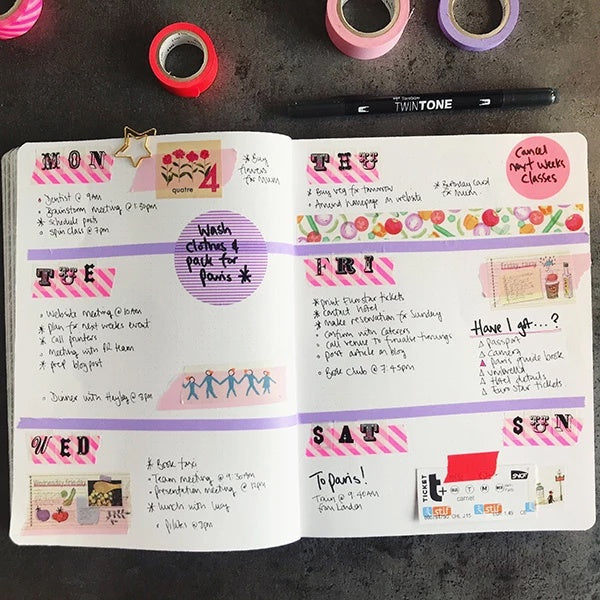 TWINTONE
MON
Dentist @ 9AM
Brainstorm meeting @ 1:30pm
* Schedule posts
spin class @ 7pm
quatre 4
* Buy
flowers
for Mum
Wash
clothes &
pack for
Paris *
TUE
Website meeting @ 10AM
* plan for next weeks event
* Call printers
meeting with PR team
* prep blog post
Dinner with Hayley @ 8pm
WED
* Book taxi
Team meeting @ 9:30AM
Presentation meeting @ 12pm
* lunch with Lucy
Pilates @ 8pm
THU
* Buy veg for tomorrow
* Amend homepage on website
* Birthday card
for Mum
Cancel
next weeks
Classes
FRI
* print Eurostar tickets
* contact hotel
* Make reservation for Sunday
Confirm with caterers
Call venue to finalise timings
post article on blog
Book Club @ 7:45pm
Have I got...?
passport
Camera
paris guide book
umbrella
Hotel details
Eurostar tickets
SAT
To Paris!
Train @ 9:40AM
from London
SUN
TICKET
t+
SNCF
stif
stif